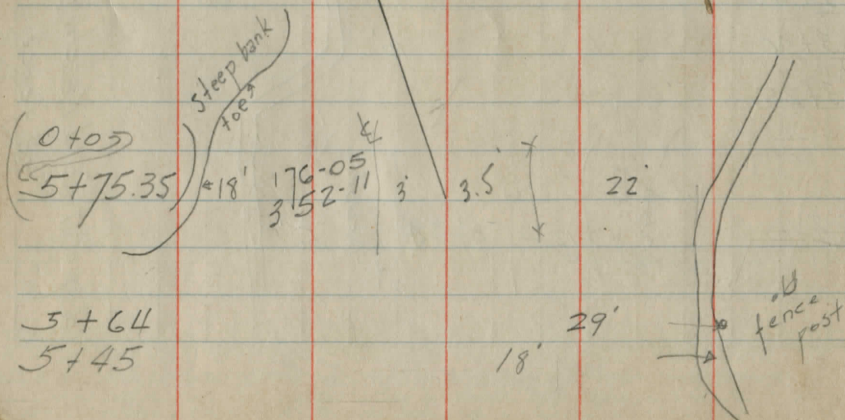 Steep bank
toe
0+05
5+75.35
18'
176-05
352-11
3'
3.5'
22'
5+64
29'
old
fence
post
5+45
18'